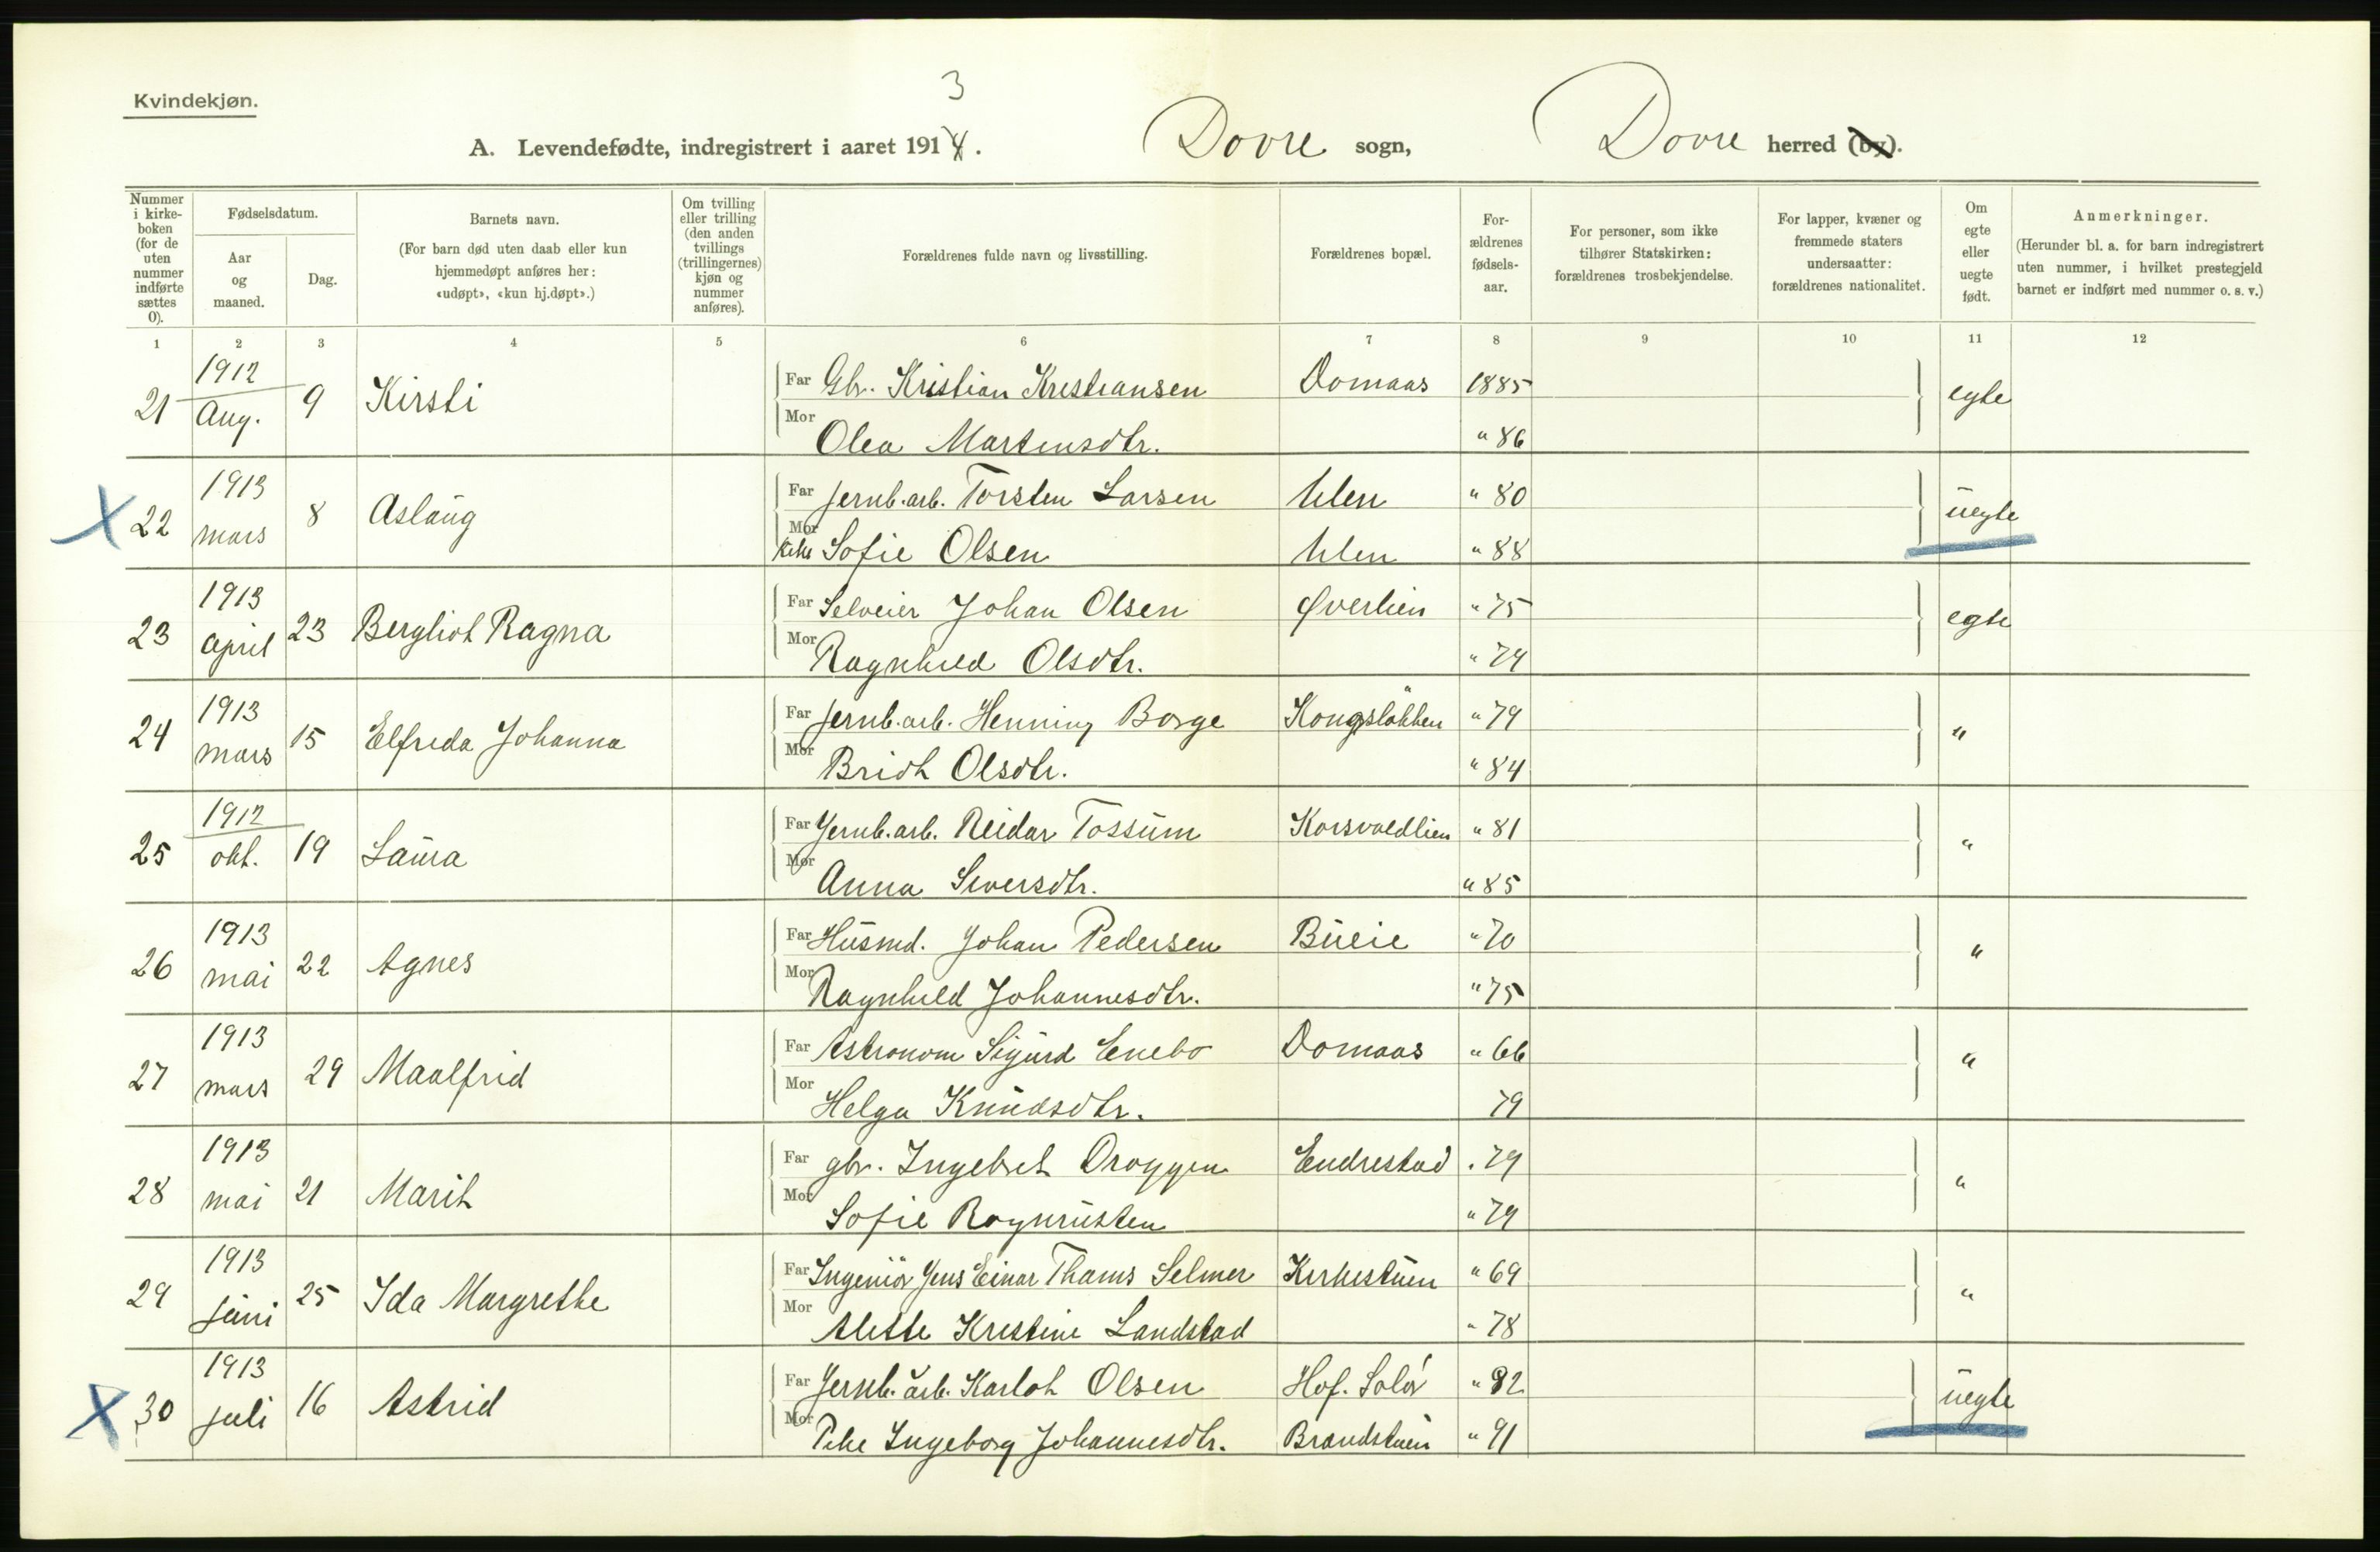 Kvindekjøn.
3
A. Levendefødte, indregistrert i aaret 1914. Dovre sogn, Dovre herred (by).
Nummer i kirkeboken (for de uten nummer indførte sættes 0). Fødselsdatum. Aar og maaned. Dag. Barnets navn. (For barn død uten daab eller kun hjemmedøpt anføres her: «udøpt», «kun hj.døpt».) Om tvilling eller trilling (den anden tvillings (trillingernes) kjøn og nummer anføres). Forældrenes fulde navn og livsstilling. Forældrenes bopæl. Forældrenes fødselsaar. For personer, som ikke tilhører Statskirken: forældrenes trosbekjendelse. For lapper, kvæner og fremmede staters undersaatter: forældrenes nationalitet. Om egte eller uegte født. Anmerkninger. (Herunder bl. a. for barn indregistrert uten nummer, i hvilket prestegjeld barnet er indført med nummer o. s. v.)
1 2 3 4 5 6 7 8 9 10 11 12
21 1912 Aug. 9 Kirsti Far Gbr. Kristian Kristiansen Domaas 1885 egte
Mor Olea Martinsdtr. " 86
22 1913 mars 8 Aslaug Far Jernb.arb. Torsten Larsen Ulen " 80 uegte
Mor Pike Sofie Olsen Ulen " 88
23 1913 april 23 Bergliot Ragna Far Selveier Johan Olsen Øverlien " 75 egte
Mor Ragnhild Olsdtr. " 74
24 1913 mars 15 Elfrida Johanna Far Jernb.arb. Henning Borge Kongsløkken " 79 "
Mor Brit Olsdtr. " 84
25 1912 okt. 19 Laura Far Jernb.arb. Reidar Tossum Korsvoldlien " 81 "
Mor Anna Siversdtr. " 85
26 1913 mai 22 Agnes Far Husmd. Johan Pedersen Bueie " 70 "
Mor Ragnhild Johannesdtr. " 75
27 1913 mars 29 Maalfrid Far Astronom Sigurd Enebo Domaas " 66 "
Mor Helga Knudsdtr. 79
28 1913 mai 21 Marit Far gbr. Ingebret Droggen Endrestad " 79 "
Mor Sofie Rognrusten " 79
29 1913 juni 25 Ida Margrethe Far Ingeniör Jens Einar Thams Selmer Kirkestuen " 69 "
Mor Alette Kristine Landstad " 78
30 1913 juli 16 Astrid Far Jernb. arb. Karlot Olsen Hof. Solør " 92 uegte
Mor Pike Ingeborg Johannesdtr. Brandstuen " 91